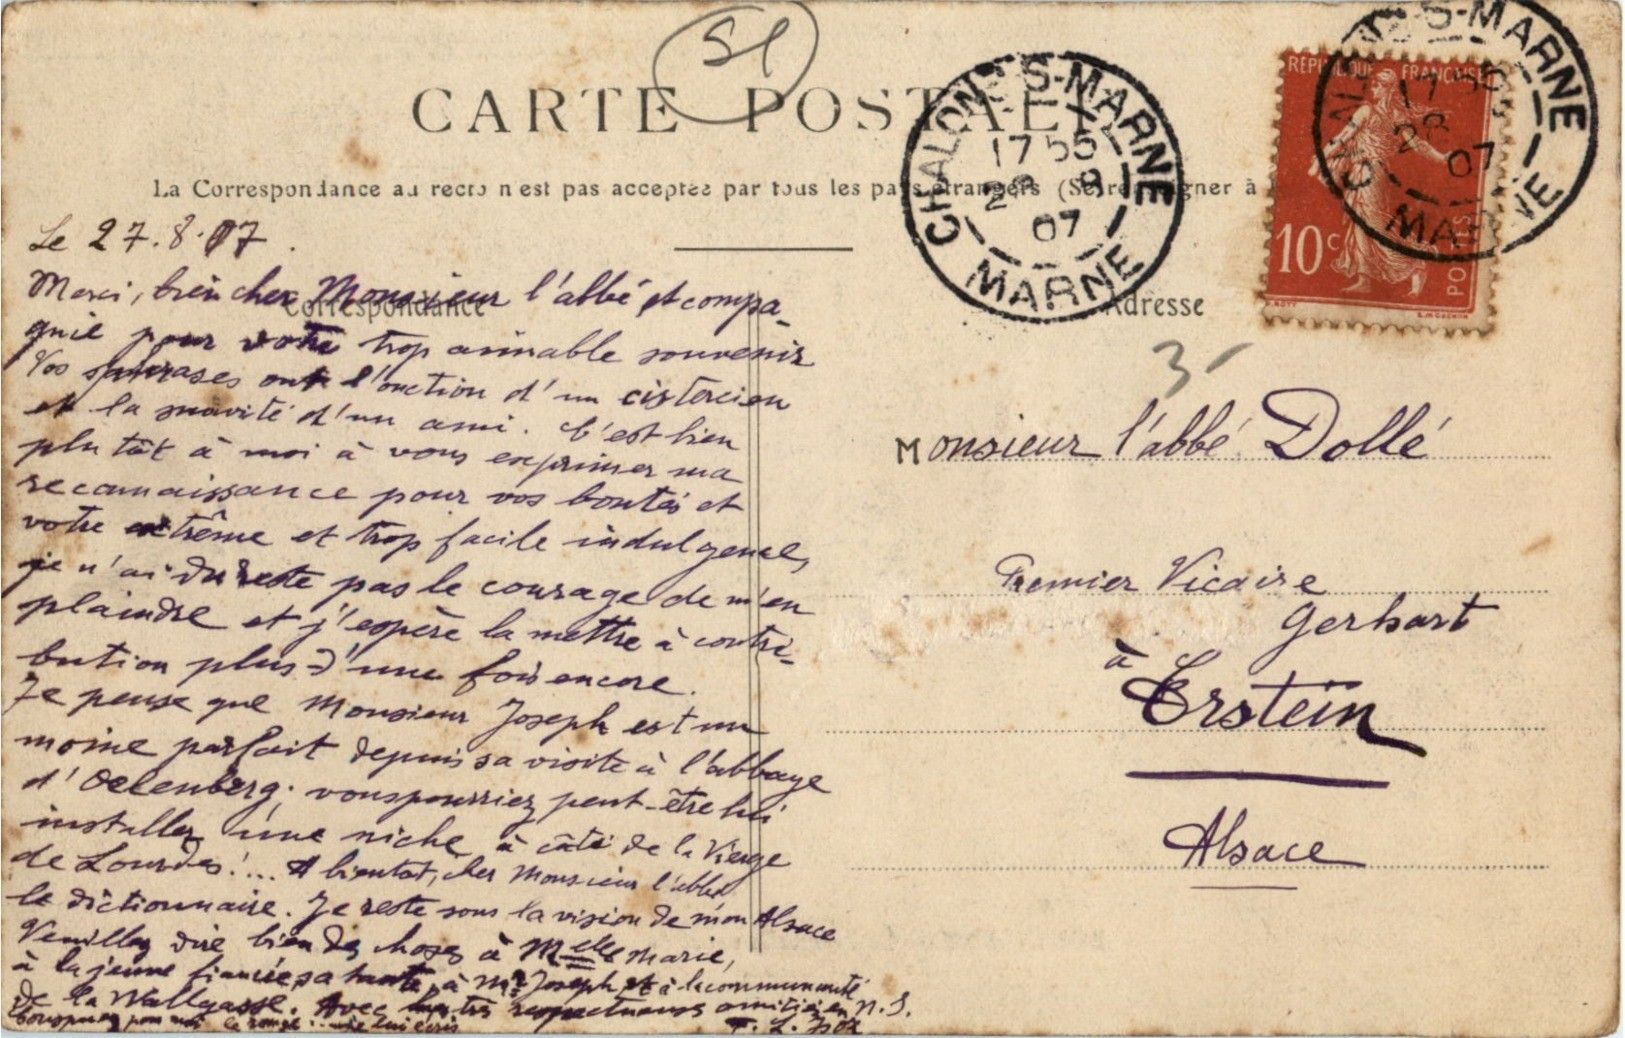 51
CARTE POSTALE
La Correspondance au recto n'est pas acceptée par tous les pays étrangers (Se renseigner à
CHALONS-S-MARNE
17 55
28 8
07
MARNE
REPUBLIQUE FRANÇAISE
10 c
POSTES
CHALONS-S-MARNE
17 55
28 8
07
MARNE
Correspondance
Adresse
Le 27.8.07.
Merci, bien cher Monsieur l'abbé et compa-
gnie pour votre trop aimable souvenir
Vos phrases ont l'onction d'un cistercien
et la suavité d'un ami. C'est bien
plutôt à moi à vous exprimer ma
reconnaissance pour vos bontés et
votre extrême et trop facile indulgence,
je n'ai du reste pas le courage de m'en
plaindre et j'espère la mettre à contri-
bution plus d'une fois encore.
Je pense que Monsieur Joseph est un
moine parfait depuis sa visite à l'abbaye
d'Oelenberg; vous pourriez peut-être lui
installer une niche à côté de la Vierge
de Lourdes!... A bientot, cher Monsieur l'abbé,
le dictionnaire. Je reste sous la vision de mon Alsace
Veuillez dire bien des choses à Melle Marie,
à la jeune fiancée, sa tante, à Mr Joseph et à la communauté
de la Wallgasse. Avec mes très respectueuses amitiés en N. S.
pour moi le rouge
3-
Monsieur l'abbé Dollé
Premier Vicaire
Gerhart
à Erstein
Alsace